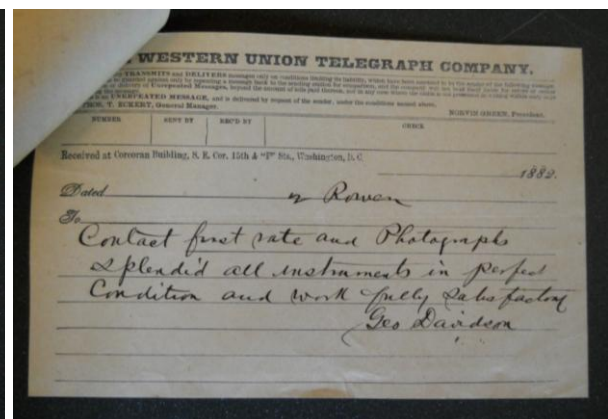 WESTERN UNION TELEGRAPH COMPANY.
TRANSMITS and DELIVERS messages only on conditions limiting its liability, which have been assented to by the sender of the following message.
THOS. T. ECKERT, General Manager.
NORVIN GREEN, President.
NUMBER SENT BY REC'D BY CHECK
Received at Corcoran Building, S. E. Cor. 15th & "F" Sts., Washington, D. C.
1882.
Dated Rowen
To
Contact first rate and Photographs
splendid all instruments in perfect
Condition and work fully satisfactory
Geo Davidson